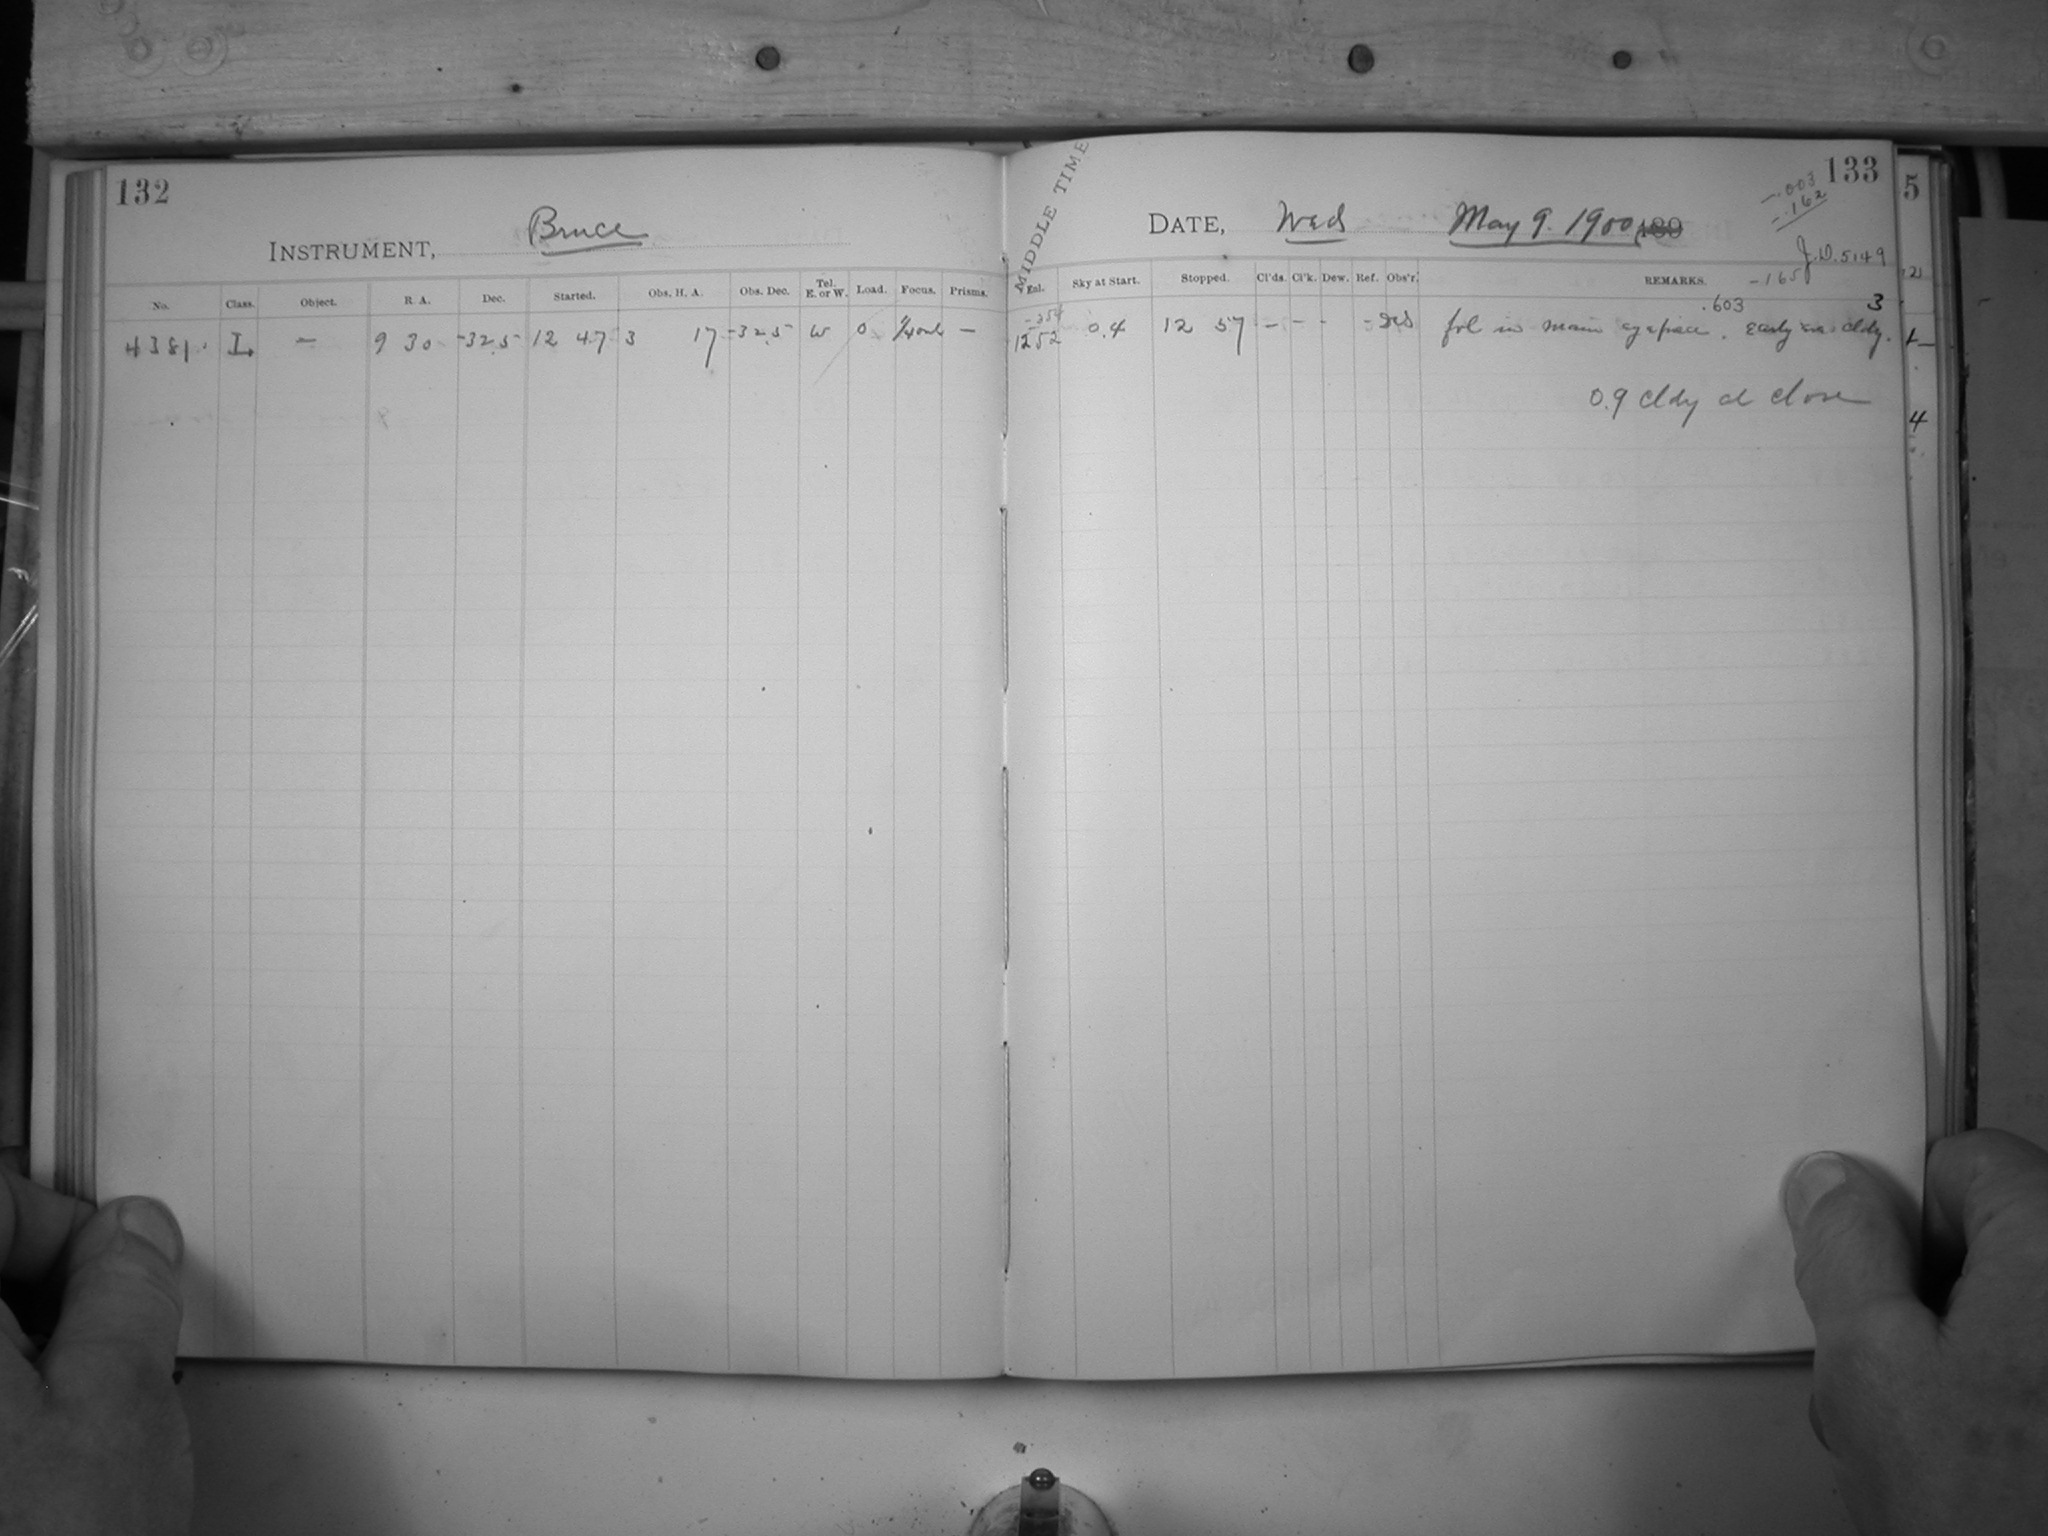 132
INSTRUMENT, Bruce
No. Class. Object. R. A. Dec. Started. Obs. H. A. Obs. Dec. Tel. E. or W. Load. Focus. Prisms.
4381 L — 9 30 -32.5 12 47 3 17 -32.5 W 0 —
MIDDLE TIME
133
-.003
-.162
DATE, Wed May 9. 1900 189
J.D. 5149
-165
Exl. Sky at Start. Stopped. Cl'ds. Cl'k. Dew. Ref. Obs'r. REMARKS.
.603 3
-354
12 52 0.4 12 57 — - - - fol in main eyepiece. Early eve cldy.
0.9 cldy at close
5
4